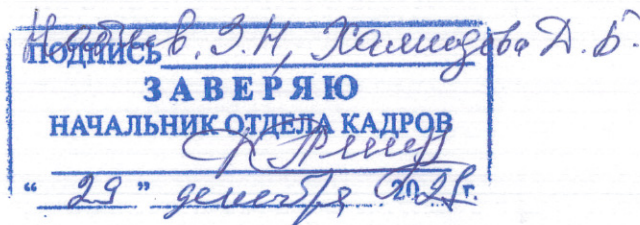 ПОДПИСЬ З.Н, Хамидова Д. Б.
ЗАВЕРЯЮ
НАЧАЛЬНИК ОТДЕЛА КАДРОВ
“ 29 ” декабря 20 г.